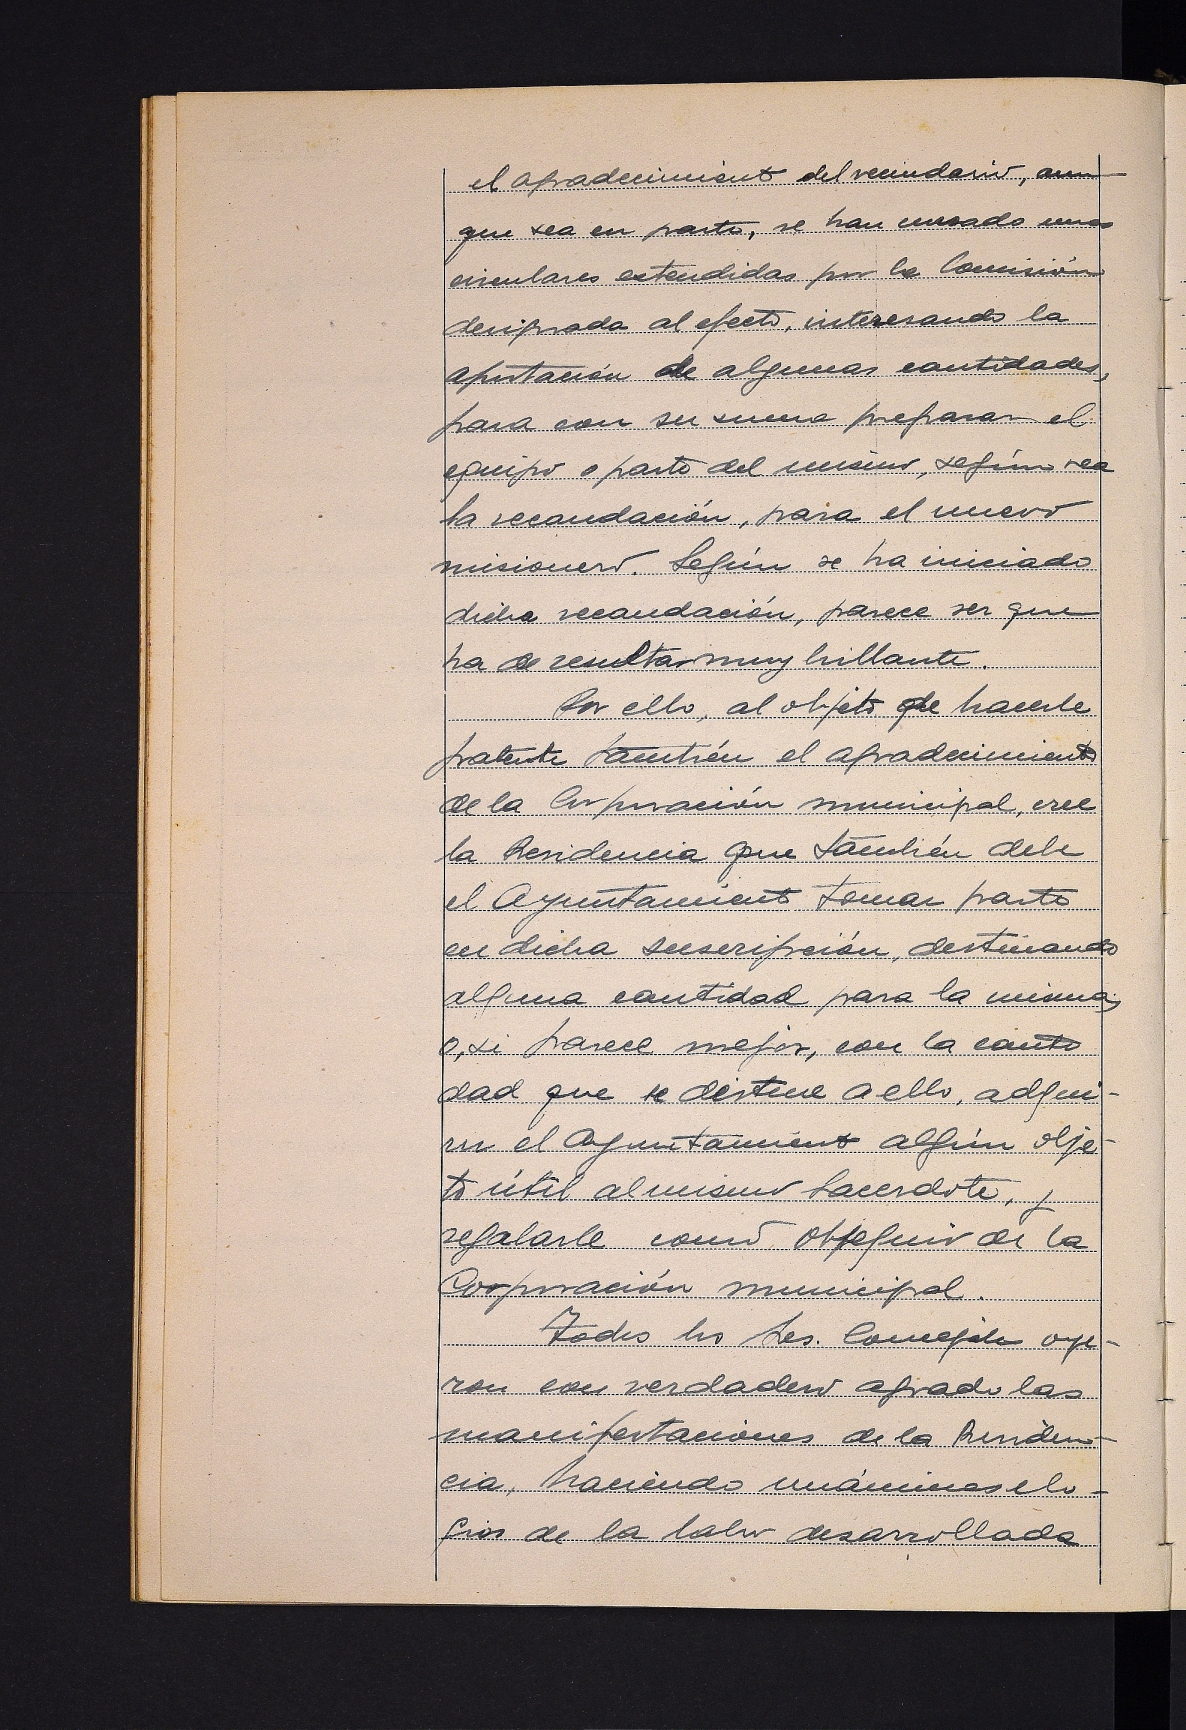 el agradecimiento del vecindario, aun
que sea en parte, se han cursado unas
circulares extendidas por la Comisión
designada al efecto, interesando la
aportación de algunas cantidades,
para con su suma preparar el
equipo o parte del mismo, según sea
la recaudación, para el nuevo
misionero. Según se ha iniciado
dicha recaudación, parece ser que
ha de resultar muy brillante.
Por ello, al objeto de hacerle
patente también el agradecimiento
de la Corporación municipal, cree
la Presidencia que también debe
el Ayuntamiento tomar parte
en dicha suscripción, destinando
alguna cantidad para la misma,
o, si parece mejor, con la canti
dad que se destine a ello, adqui-
rir el Ayuntamiento algún obje-
to útil al mismo Sacerdote, y
regalarle como obsequio de la
Corporación municipal.
Todos los Sres. Concejales oye-
ron con verdadero agrado las
manifestaciones de la Presiden-
cia, haciendo unánimes elo-
gios de la labor desarrollada